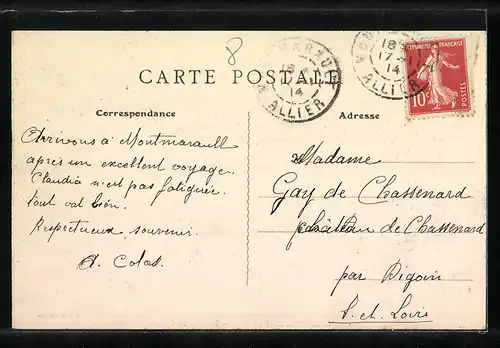 8
CARTE POSTALE
MARAULT
18
14
ALLIER
18
17
14
ALLIER
REPUBLIQUE FRANÇAISE
10c
POSTES
Correspondance
Arrivons à Montmarault
après un excellent voyage.
Claudia n'est pas fatiguée.
tout va bien!
Respectueux souvenir.
A. Colas
Adresse
Madame
Gay de Chassenard
château de Chassenard
par Digoin
S. et Loire